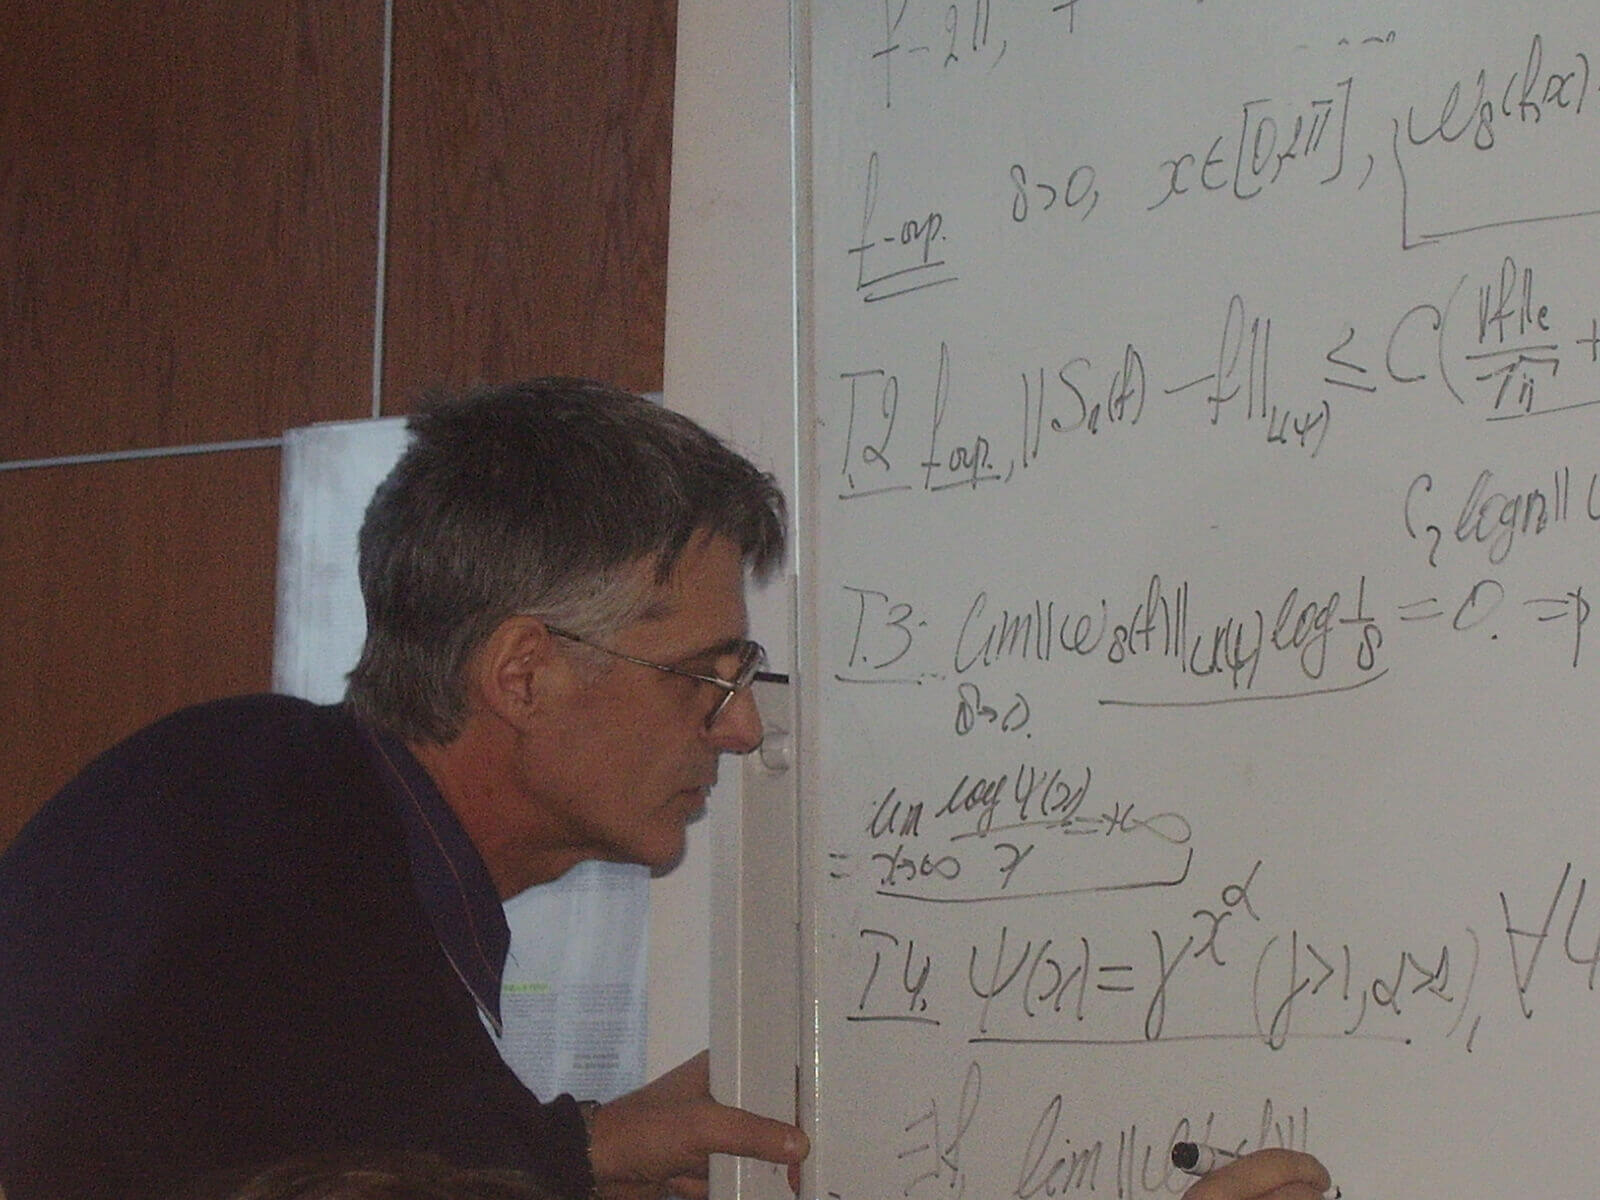 f - 2π,
f-огр. δ>0, x∈[0,2π], ω_δ(f,x)
T.2 f огр., ||S_n(f) - f||_{L(ψ)} ≤ C(||f||_C / n +
C_2 log n||
T.3. lim_{δ→0} ||ω_δ(f)||_{L(ψ)} log 1/δ = 0. ⇒
= lim_{x→∞} log ψ(x) / x = +∞
T.4. ψ(x) = γ^{x^α} (γ>1, α>1), ∀
∃f, lim ||